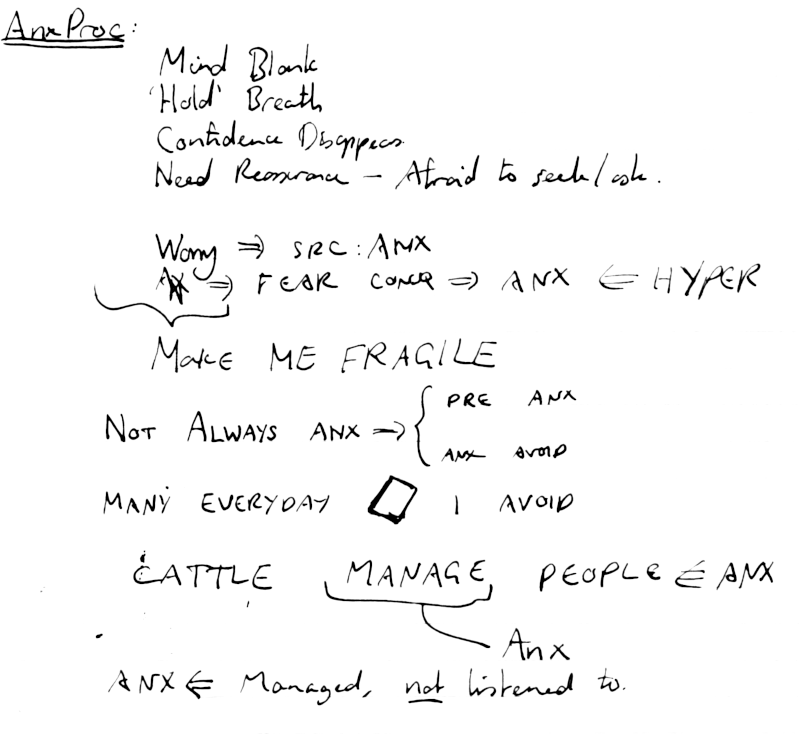 Anx Proc:
Mind Blank
'Hold' Breath
Confidence Disappears
Need Reassurance – Afraid to seek/ask.
Worry ⇒ SRC: ANX
⇒ FEAR CONCR ⇒ ANX ⇐ HYPER
MAKE ME FRAGILE
NOT ALWAYS ANX ⇒ { PRE ANX
ANX AVOID
MANY EVERYDAY I AVOID
CATTLE MANAGE PEOPLE ⇐ ANX
Anx
ANX ⇐ Managed, not listened to.